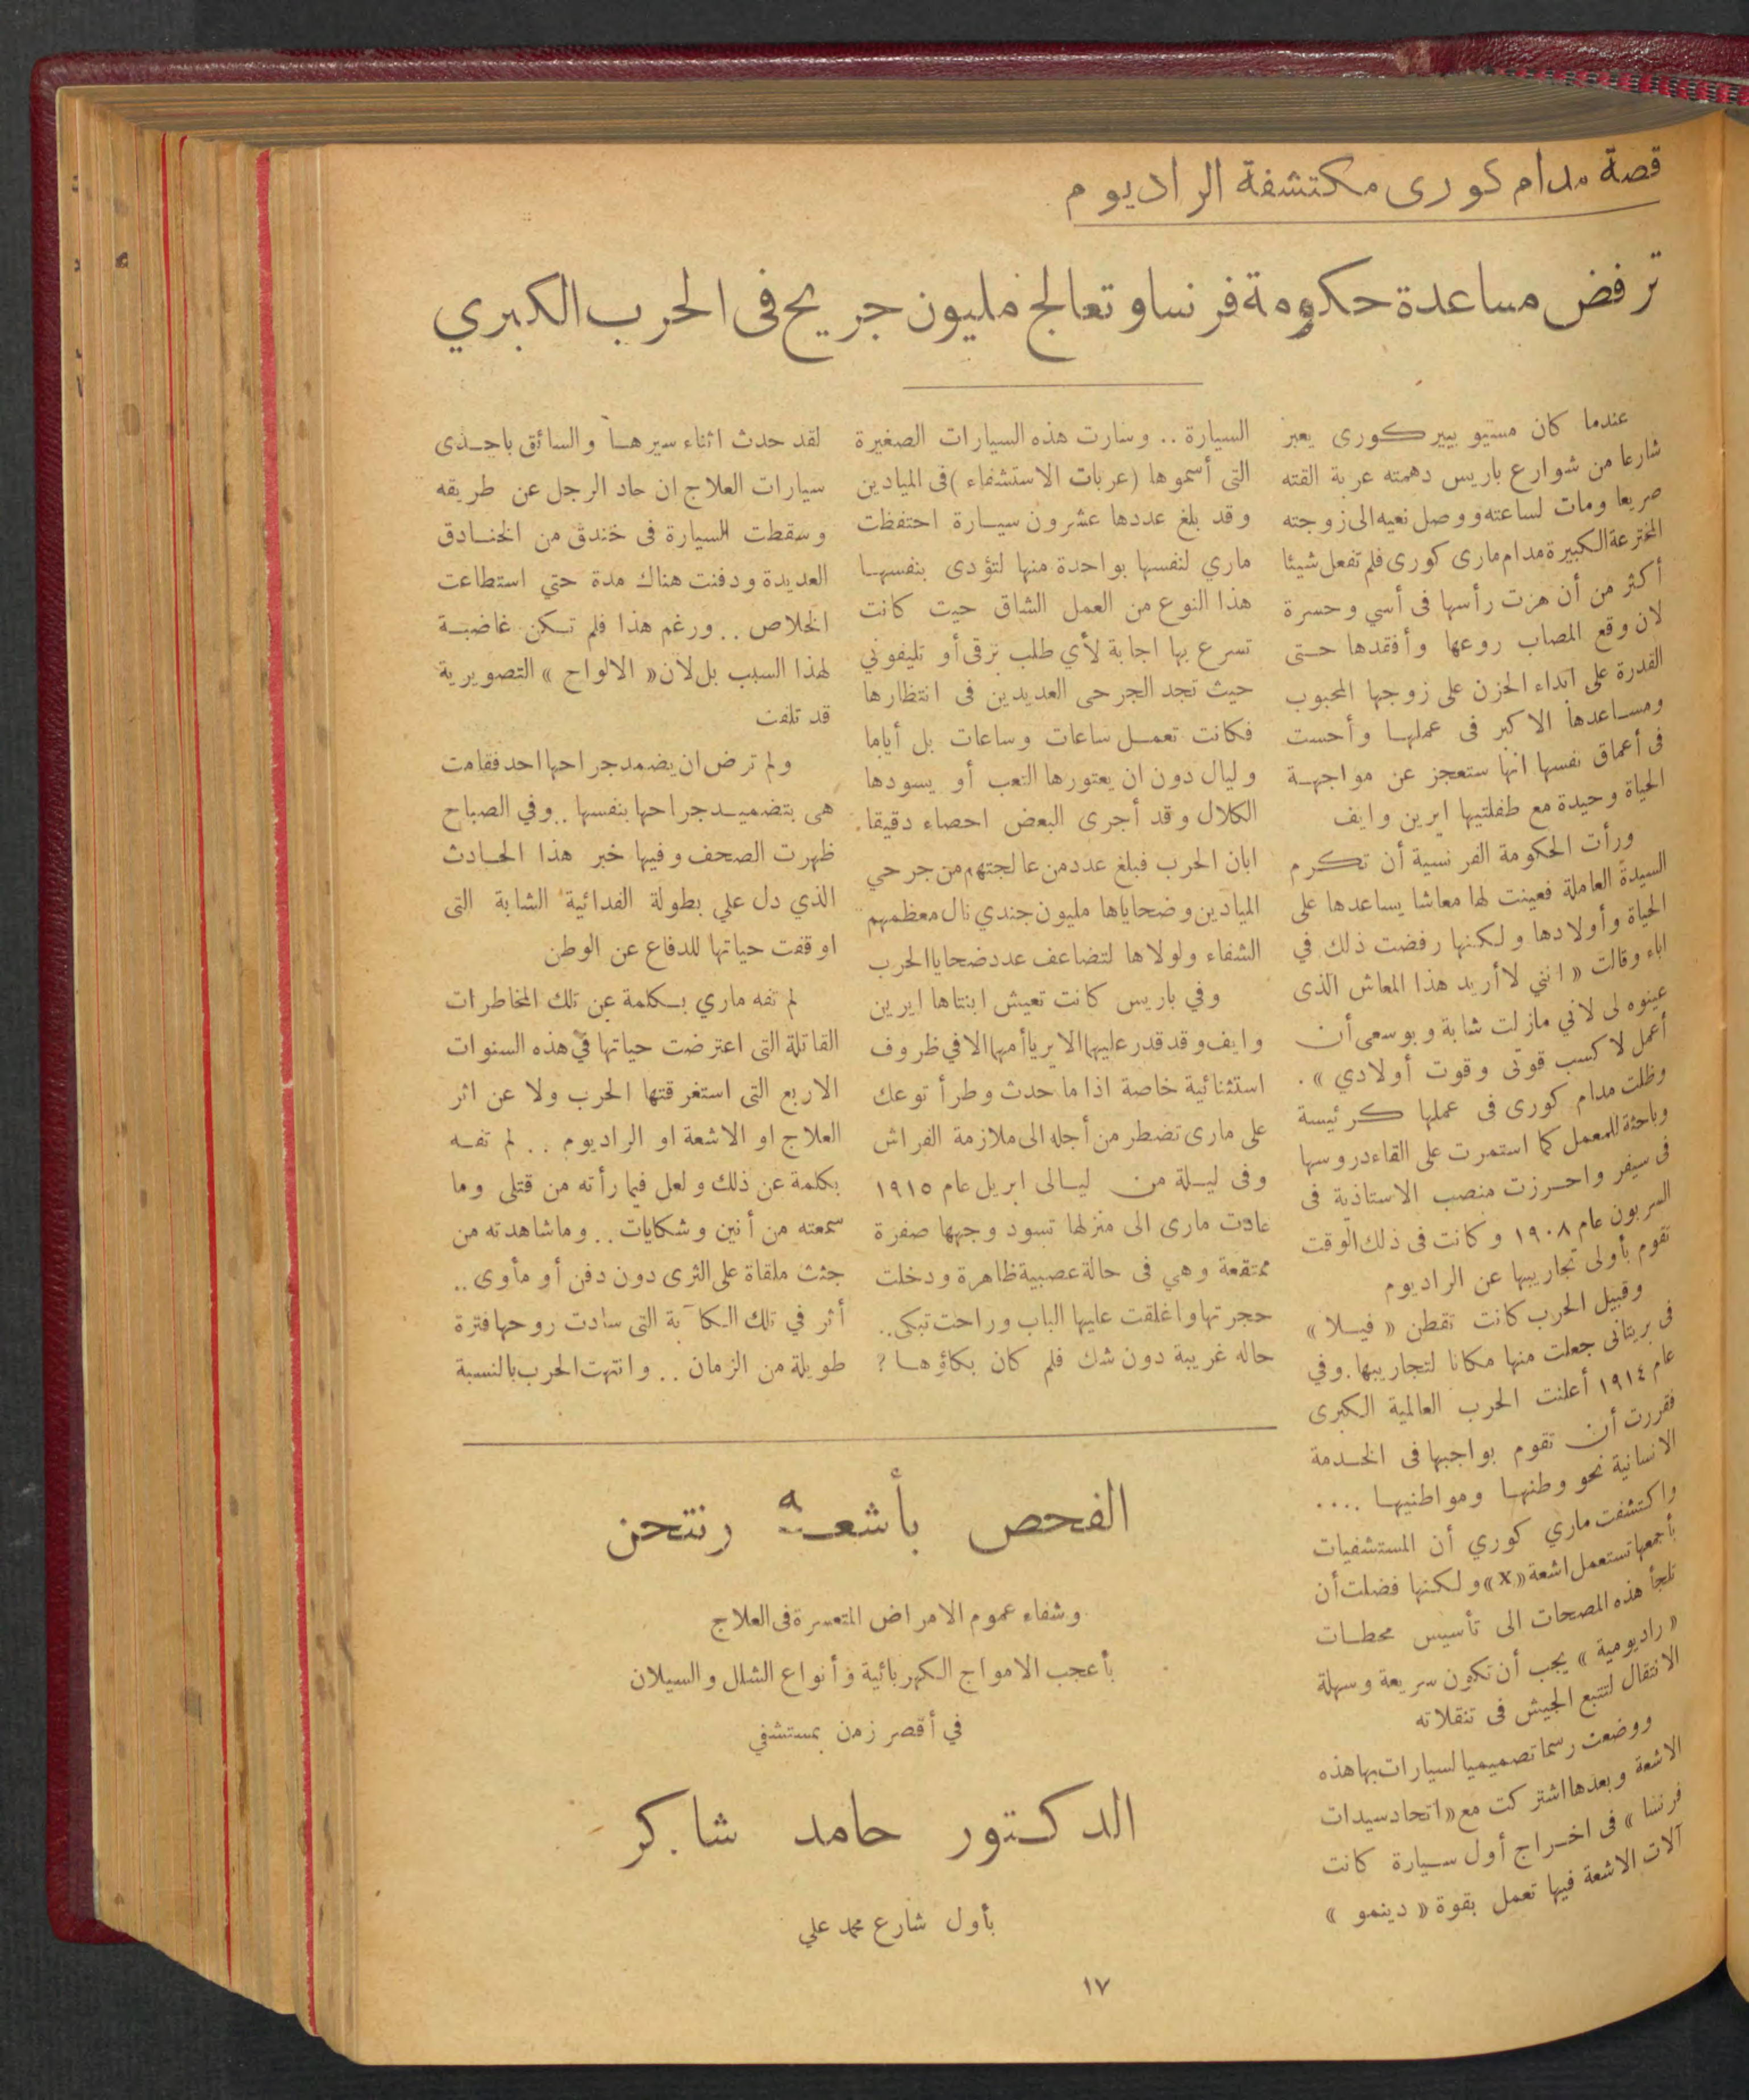 قصة مدام كورى مكتشفة الراديوم
ترفض مساعدة حكومة فرنسا وتعالج مليون جريح فى الحرب الكبري
عندما كان مسيو بيير كورى يعبر
شارعا من شوارع باريس دهمته عربة القته
صريعا ومات لساعته ووصل نعيه الى زوجته
المخترعة الكبيرة مدام مارى كورى فلم تفعل شيئا
أكثر من أن هزت رأسها فى أسي وحسرة
لان وقع المصاب روعها وأفقدها حتى
القدرة على ابداء الحزن على زوجها المحبوب
ومساعدها الاكبر فى عملها وأحست
فى أعماق نفسها انها ستعجز عن مواجهة
الحياة وحيدة مع طفلتيها ايرين وايف
ورأت الحكومة الفرنسية أن تكرم
السيدة العاملة فعينت لها معاشا يساعدها على
الحياة وأولادها ولكنها رفضت ذلك في
اباء وقالت « انني لا أريد هذا المعاش الذى
عينوه لى لاني مازلت شابة وبوسعى أن
أعمل لا كسب قوتى وقوت أولادي » .
وظلت مدام كورى فى عملها كرئيسة
وباحثة للمعمل كما استمرت على القاء دروسها
فى سيفر واحرزت منصب الاستاذية فى
السربون عام ١٩٠٨ وكانت فى ذلك الوقت
تقوم بأولى تجاريبها عن الراديوم
وقبيل الحرب كانت تقطن « فيلا »
فى بريتانى جعلت منها مكانا لتجاريبها . وفي
عام ١٩١٤ أعلنت الحرب العالمية الكبرى
فقررت أن تقوم بواجبها فى الخدمة
الانسانية نحو وطنها ومواطنيها ....
واكتشفت ماري كوري أن المستشفيات
بأجمعها تستعمل اشعة « X » ولكنها فضلت أن
تلجأ هذه المصحات الى تأسيس محطات
« راديومية » يجب أن تكون سريعة وسهلة
الانتقال لتتبع الجيش فى تنقلاته
ووضعت رسما تصميميا لسيارات بها هذه
الاشعة وبعدها اشتركت مع « اتحاد سيدات
فرنسا » فى اخراج أول سيارة كانت
آلات الاشعة فيها تعمل بقوة « دينمو »
السيارة .. وسارت هذه السيارات الصغيرة
التى أسموها ( عربات الاستشفاء ) فى الميادين
وقد بلغ عددها عشرون سيارة احتفظت
ماري لنفسها بواحدة منها لتؤدى بنفسها
هذا النوع من العمل الشاق حيت كانت
تسرع بها اجابة لأي طلب برقى أو تليفوني
حيث تجد الجرحى العديدين فى انتظارها
فكانت تعمل ساعات وساعات بل أياما
وليال دون ان يعتورها التعب أو يسودها
الكلال وقد أجرى البعض احصاء دقيقا
ابان الحرب فبلغ عدد من عالجتهم من جرحي
الميادين وضحاياها مليون جندي نال معظمهم
الشفاء ولولاها لتضاعف عدد ضحايا الحرب
وفي باريس كانت تعيش ابنتاها ايرين
وايف وقد قدر عليهما الا يريا أمهما الا في ظروف
استثنائية خاصة اذا ما حدث وطرأ توعك
على مارى تضطر من أجله الى ملازمة الفراش
وفى ليلة من ليالى ابريل عام ١٩١٥
عادت مارى الى منزلها تسود وجهها صفرة
ممتقعة وهي فى حالة عصبية ظاهرة ودخلت
حجرتها واغلقت عليها الباب وراحت تبكى ..
حاله غريبة دون شك فلم كان بكاؤها ؟
لقد حدث اثناء سيرها والسائق باحدى
سيارات العلاج ان حاد الرجل عن طريقه
وسقطت السيارة فى خندق من الخنادق
العديدة ودفنت هناك مدة حتي استطاعت
الخلاص .. ورغم هذا فلم تكن غاضبة
لهذا السبب بل لان « الالواح » التصويرية
قد تلفت
ولم ترض ان يضمد جراحها احد فقامت
هى بتضميد جراحها بنفسها .. وفي الصباح
ظهرت الصحف وفيها خبر هذا الحادث
الذي دل علي بطولة الفدائية الشابة التى
اوقفت حياتها للدفاع عن الوطن
لم تفه ماري بكلمة عن تلك المخاطرات
القاتلة التى اعترضت حياتها في هذه السنوات
الاربع التى استغرقتها الحرب ولا عن اثر
العلاج او الاشعة او الراديوم .. لم تفه
بكلمة عن ذلك ولعل فيما رأته من قتلى وما
سمعته من أنين وشكايات .. وما شاهدته من
جثث ملقاة على الثرى دون دفن أو مأوى ..
أثر في تلك الكآبة التى سادت روحها فترة
طويلة من الزمان .. وانتهت الحرب بالنسبة
الفحص بأشعة رنتجن
وشفاء عموم الامراض المتعسرة فى العلاج
بأعجب الامواج الكهربائية وأنواع الشلل والسيلان
في أقصر زمن بمستشفي
الدكتور حامد شاكر
بأول شارع محمد علي
١٧